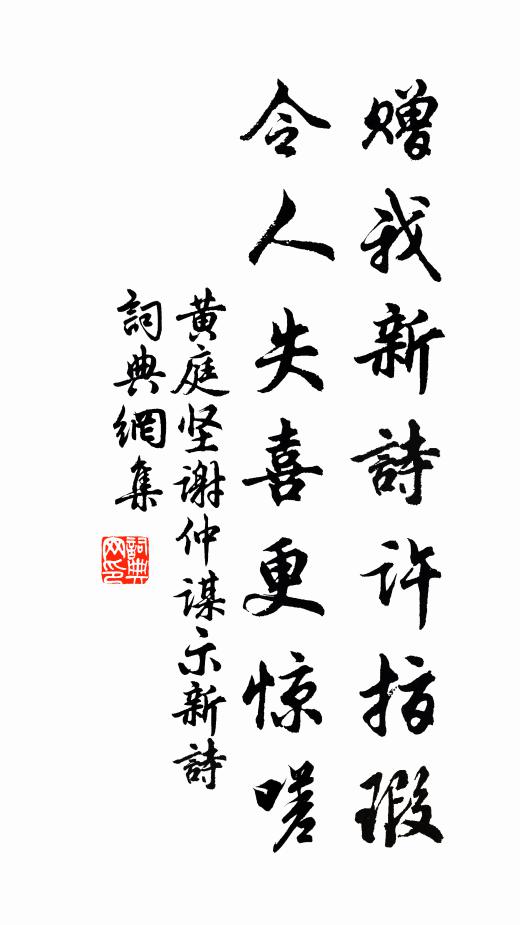 赠我新詩许指瑕
令人失喜更惊嗟
黄庭坚谢仲谋示新詩
詞典網集
詞典网印